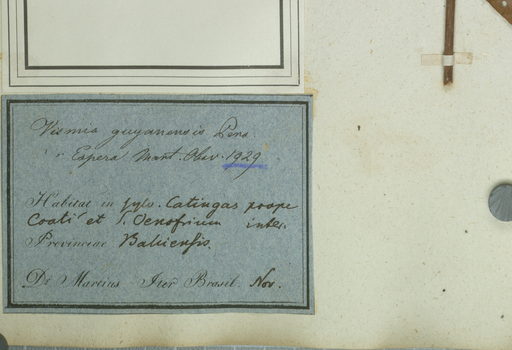 Vismia guyanensis Pers.
Capera Mart. Obsv. 1929
Habitat in sylv. Catingas prope
Coati et S. Onofrium inter.
Provinciae Bahiensis.
Dr Martius Iter Brasil. Nov.